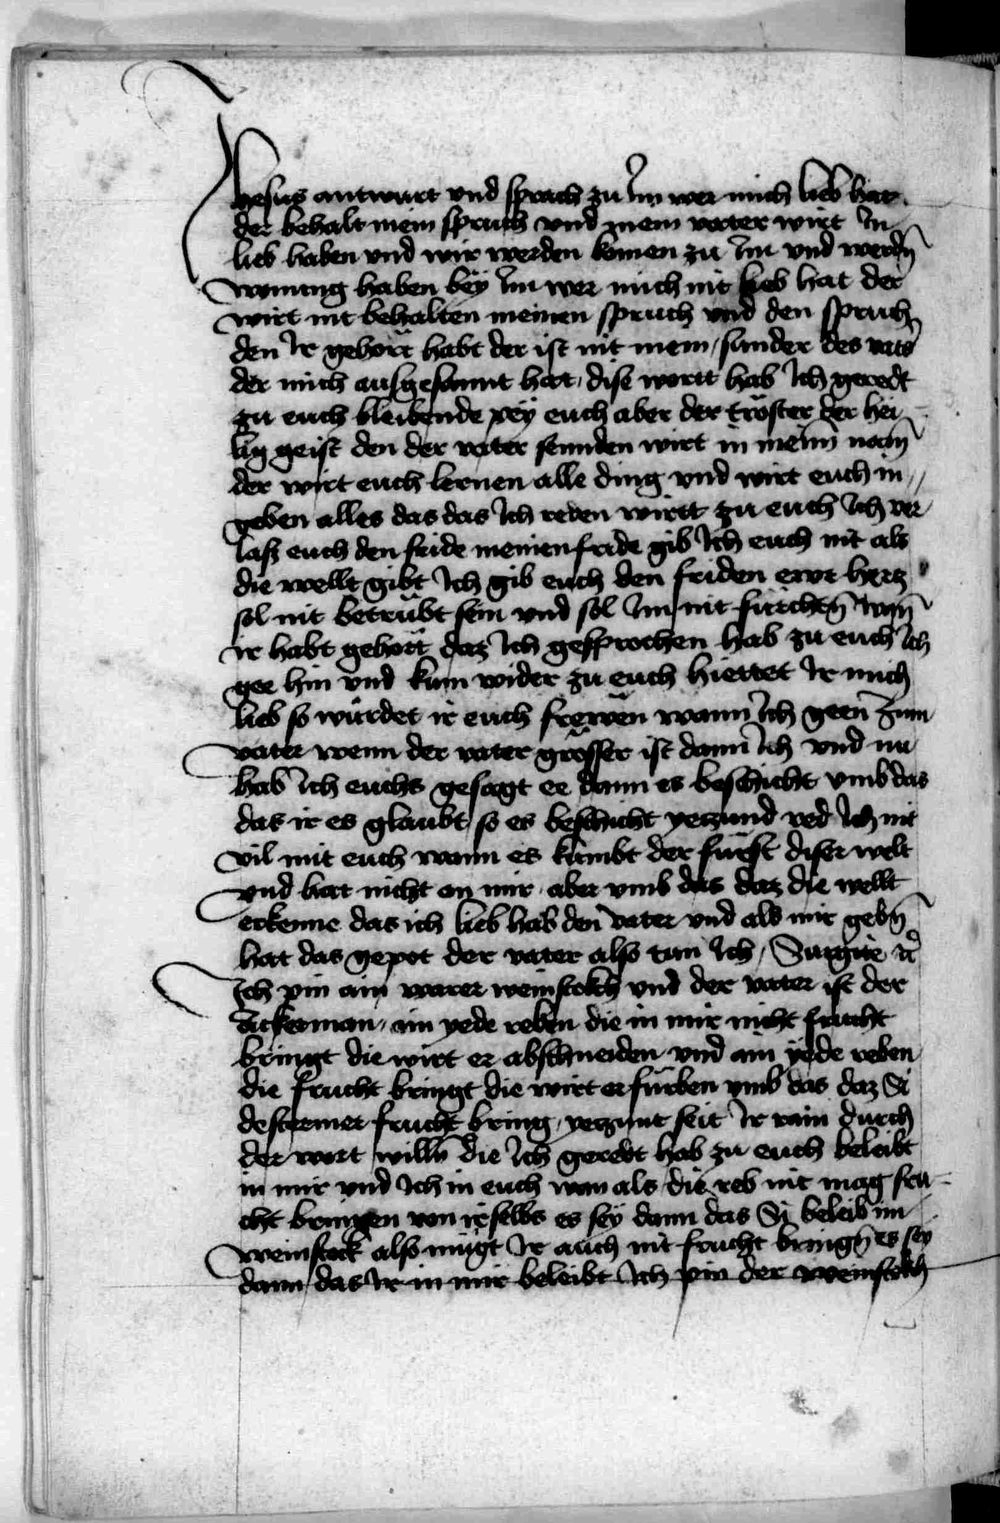 Jhesus antwurt vnd sprach zu Im wer mich lieb hat
der behalt mein spruch vnd mein vater wirt In
lieb haben vnd wir werden komen zu Im vnd werdn̄
wonung haben bey Im wer mich nit lieb hat der
wirt nit behalten meinen spruch vnd den spruch
den Ir gehört habt der ist nit mein / sunder des vats̄
der mich ausgesannt hat / dise wort hab Ich geredt
zu euch bleibende pey euch aber der tröster der hei-
lig geist den der vater sennden wirt in meinn̄ nam̄
der wirt euch lernen alle ding vnd wirt euch in//
geben alles das das Ich reden wirtt zu euch Ich ver
laß euch den fride meinen fride gib Ich euch nit als
die wellt gibt Ich gib euch den friden ewr hertz
sol nit betrübt sein vnd sol Im nit fürchtn̄ wan̄
ir habt gehört daz Ich gesprochen hab zu euch Ich
gee hin vnd kum wider zu euch hiettet Ir mich
lieb so würdet ir euch frewen wann Ich geen zum
vater wenn der vater grösser ist dann Ich vnd nu
hab Ich euchs gesagt ee dann es beschicht vmb das
das ir es glaubt so es beschicht yetzund red Ich nit
vil mit euch wann es kümbt der fürst diser welt
vnd hat nicht an mir / aber vmb das daz die wellt
erkenne das ich lieb hab den vater vnd als mir gebn̄
hat das gepot der vater also tun Ich / Surgite
Ich pin ain warer weinstockh vnd der vater ist der
Ackerman / ain yede reben die in mir nicht frucht
bringt die wirt er abschneiden vnd ain yede reben
die frucht bringt die wirt er fürben vmb das daz Si
destermer frucht bring / yetzunt seit Ir rain durch
der wort willn̄ die Ich geredt hab zu euch beleibt
in mir vnd Ich in euch wan als die reb nit mag fru-
cht bringen von ir selbs es sey dann das Si beleib im
weinstock also mügt Ir auch nit frucht bringn̄ es sey
dann das Ir in mir beleibt Ich pin der weinstockh